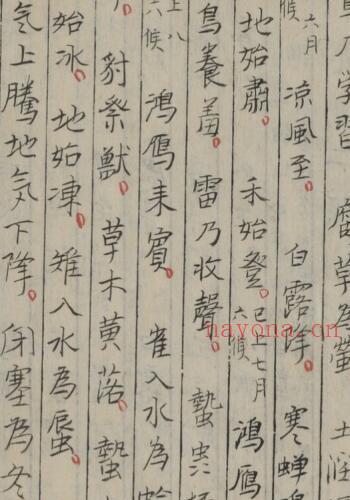 乃学習。腐草為螢。土潤
六月候 凉風至。白露降。寒蝉
地始肅。禾始登。已上七月六候 鴻鴈
鳥養羞。雷乃收聲。蟄虫
上八六候 鴻鴈来賓。雀入水為蛤
豺祭獣。草木黄落。蟄
始冰。地始凍。雉入水為蜃。
气上騰地气下降。闭塞為冬
nayona.cn